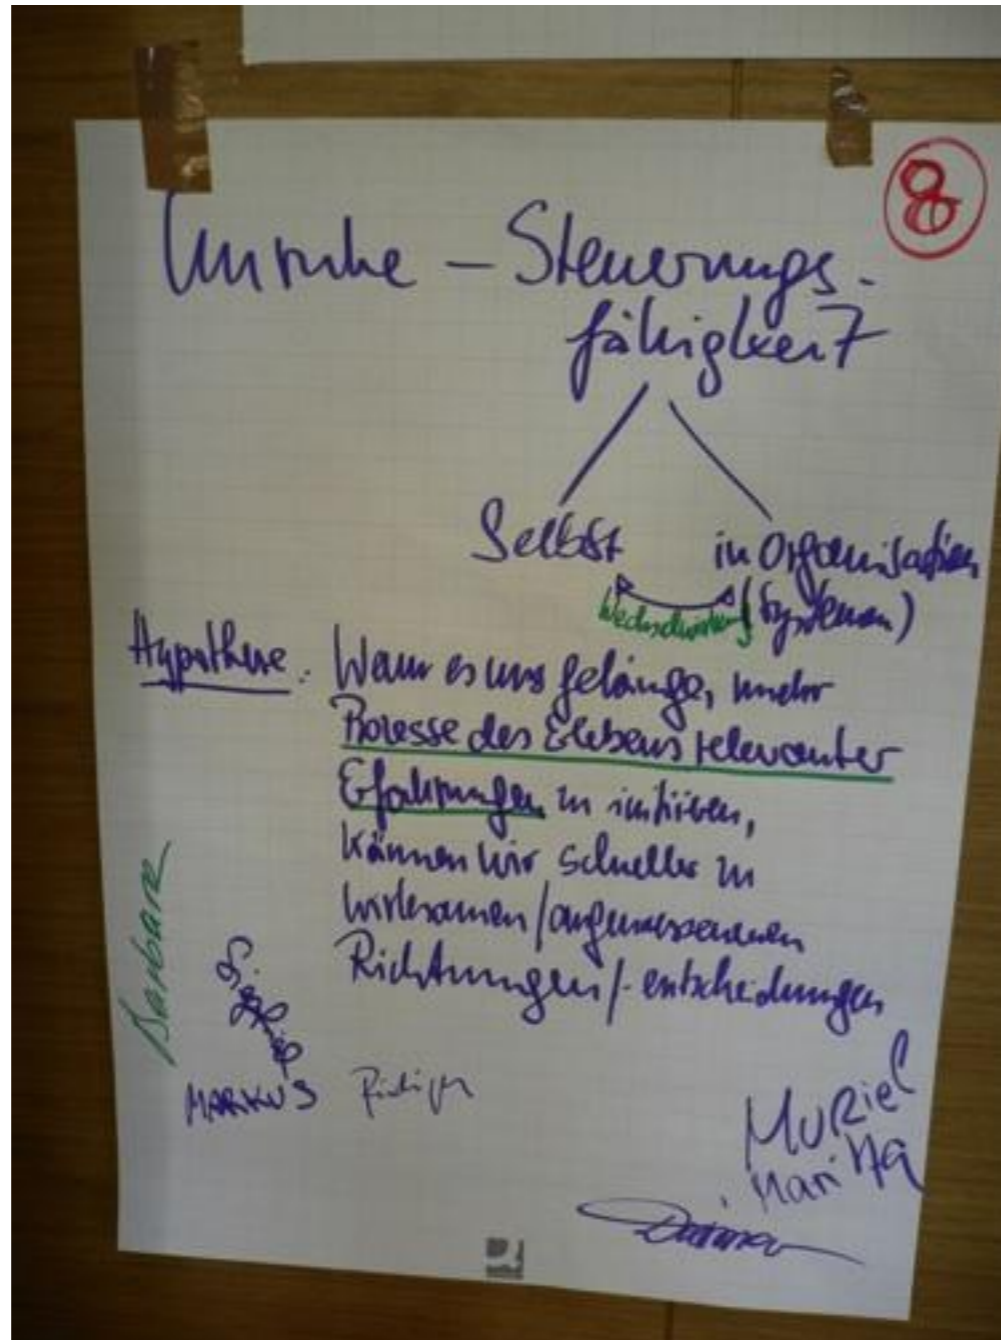 8
Unruhe – Steuerungs-
fähigkeit
Selbst in Organisation
Wechselwirkung (Systemen)
Hypothese: Wenn es uns gelänge, mehr
Prozesse des Erlebens relevanter
Erfahrungen zu initiieren,
können wir schneller zu
wirksamen/angemessenen
Richtungen/-entscheidungen
Barbara
Sophie
MARKUS Rüdiger
MURiel
Maritta